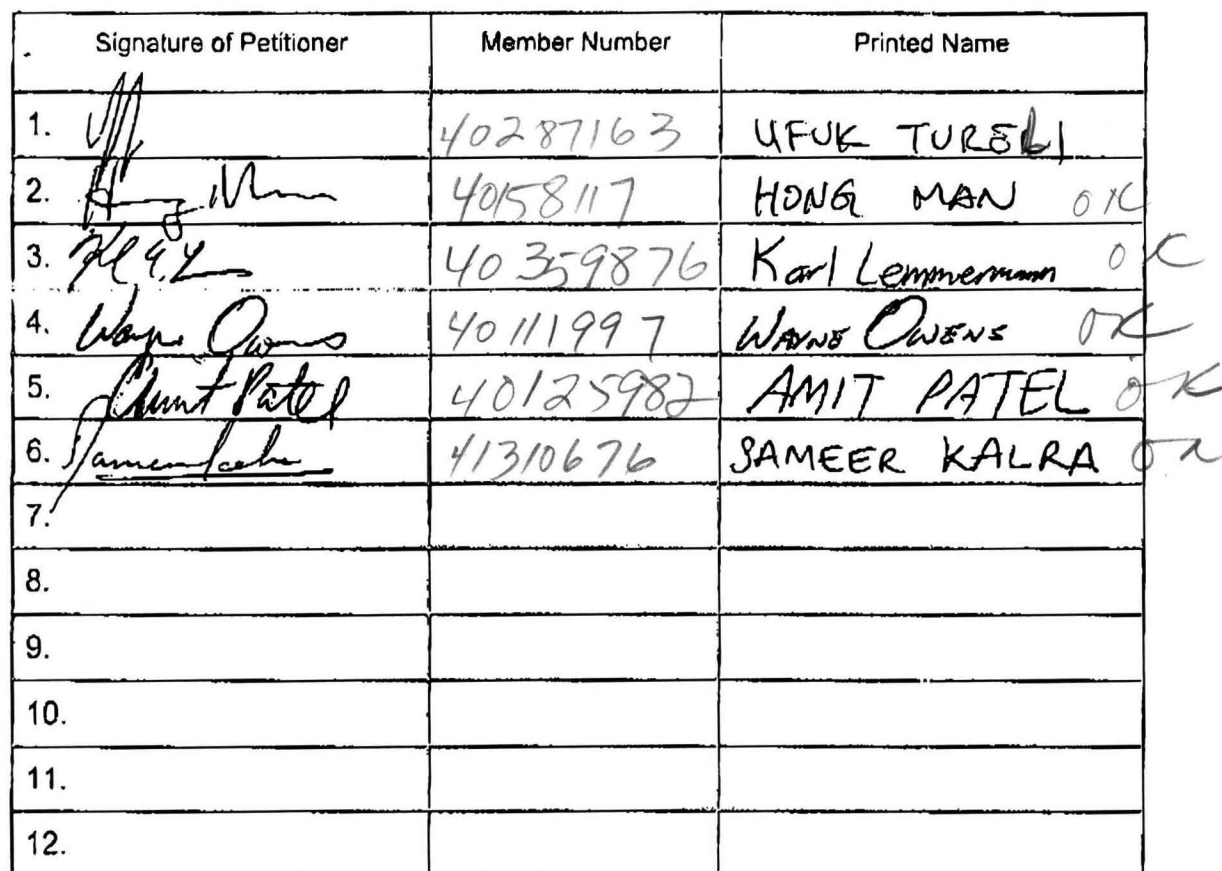 Signature of Petitioner Member Number Printed Name
1. 40287163 UFUK TURELI
2. 40158117 HONG MAN OK
3. 40359876 Karl Lemmermann OK
4. Wayne Owens 40111997 WAYNE OWENS OK
5. Amit Patel 40125982 AMIT PATEL OK
6. 41310676 SAMEER KALRA OK
7.
8.
9.
10.
11.
12.